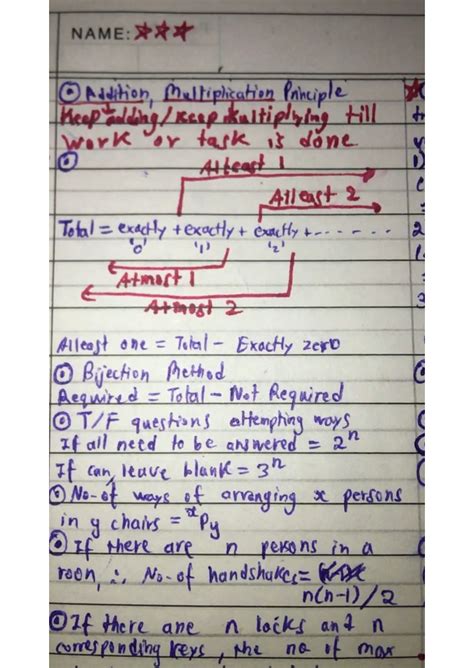 NAME: ☆☆☆
⊙ Addition, Multiplication Principle
Keep adding/keep multiplying till
work or task is done
⊙ Atleast 1
Atleast 2
Total = exactly + exactly + exactly + - - - - - -
'0' '1' '2'
Atmost 1
Atmost 2
Atleast one = Total - Exactly zero
⊙ Bijection Method
Required = Total - Not Required
⊙ T/F questions attempting ways
If all need to be answered = 2ⁿ
If can leave blank = 3ⁿ
⊙ No. of ways of arranging x persons
in y chairs = ˣPy
⊙ If there are n persons in a
room, ∴ No. of handshakes =
n(n-1)/2
⊙ If there are n locks and n
corresponding keys, the no of max